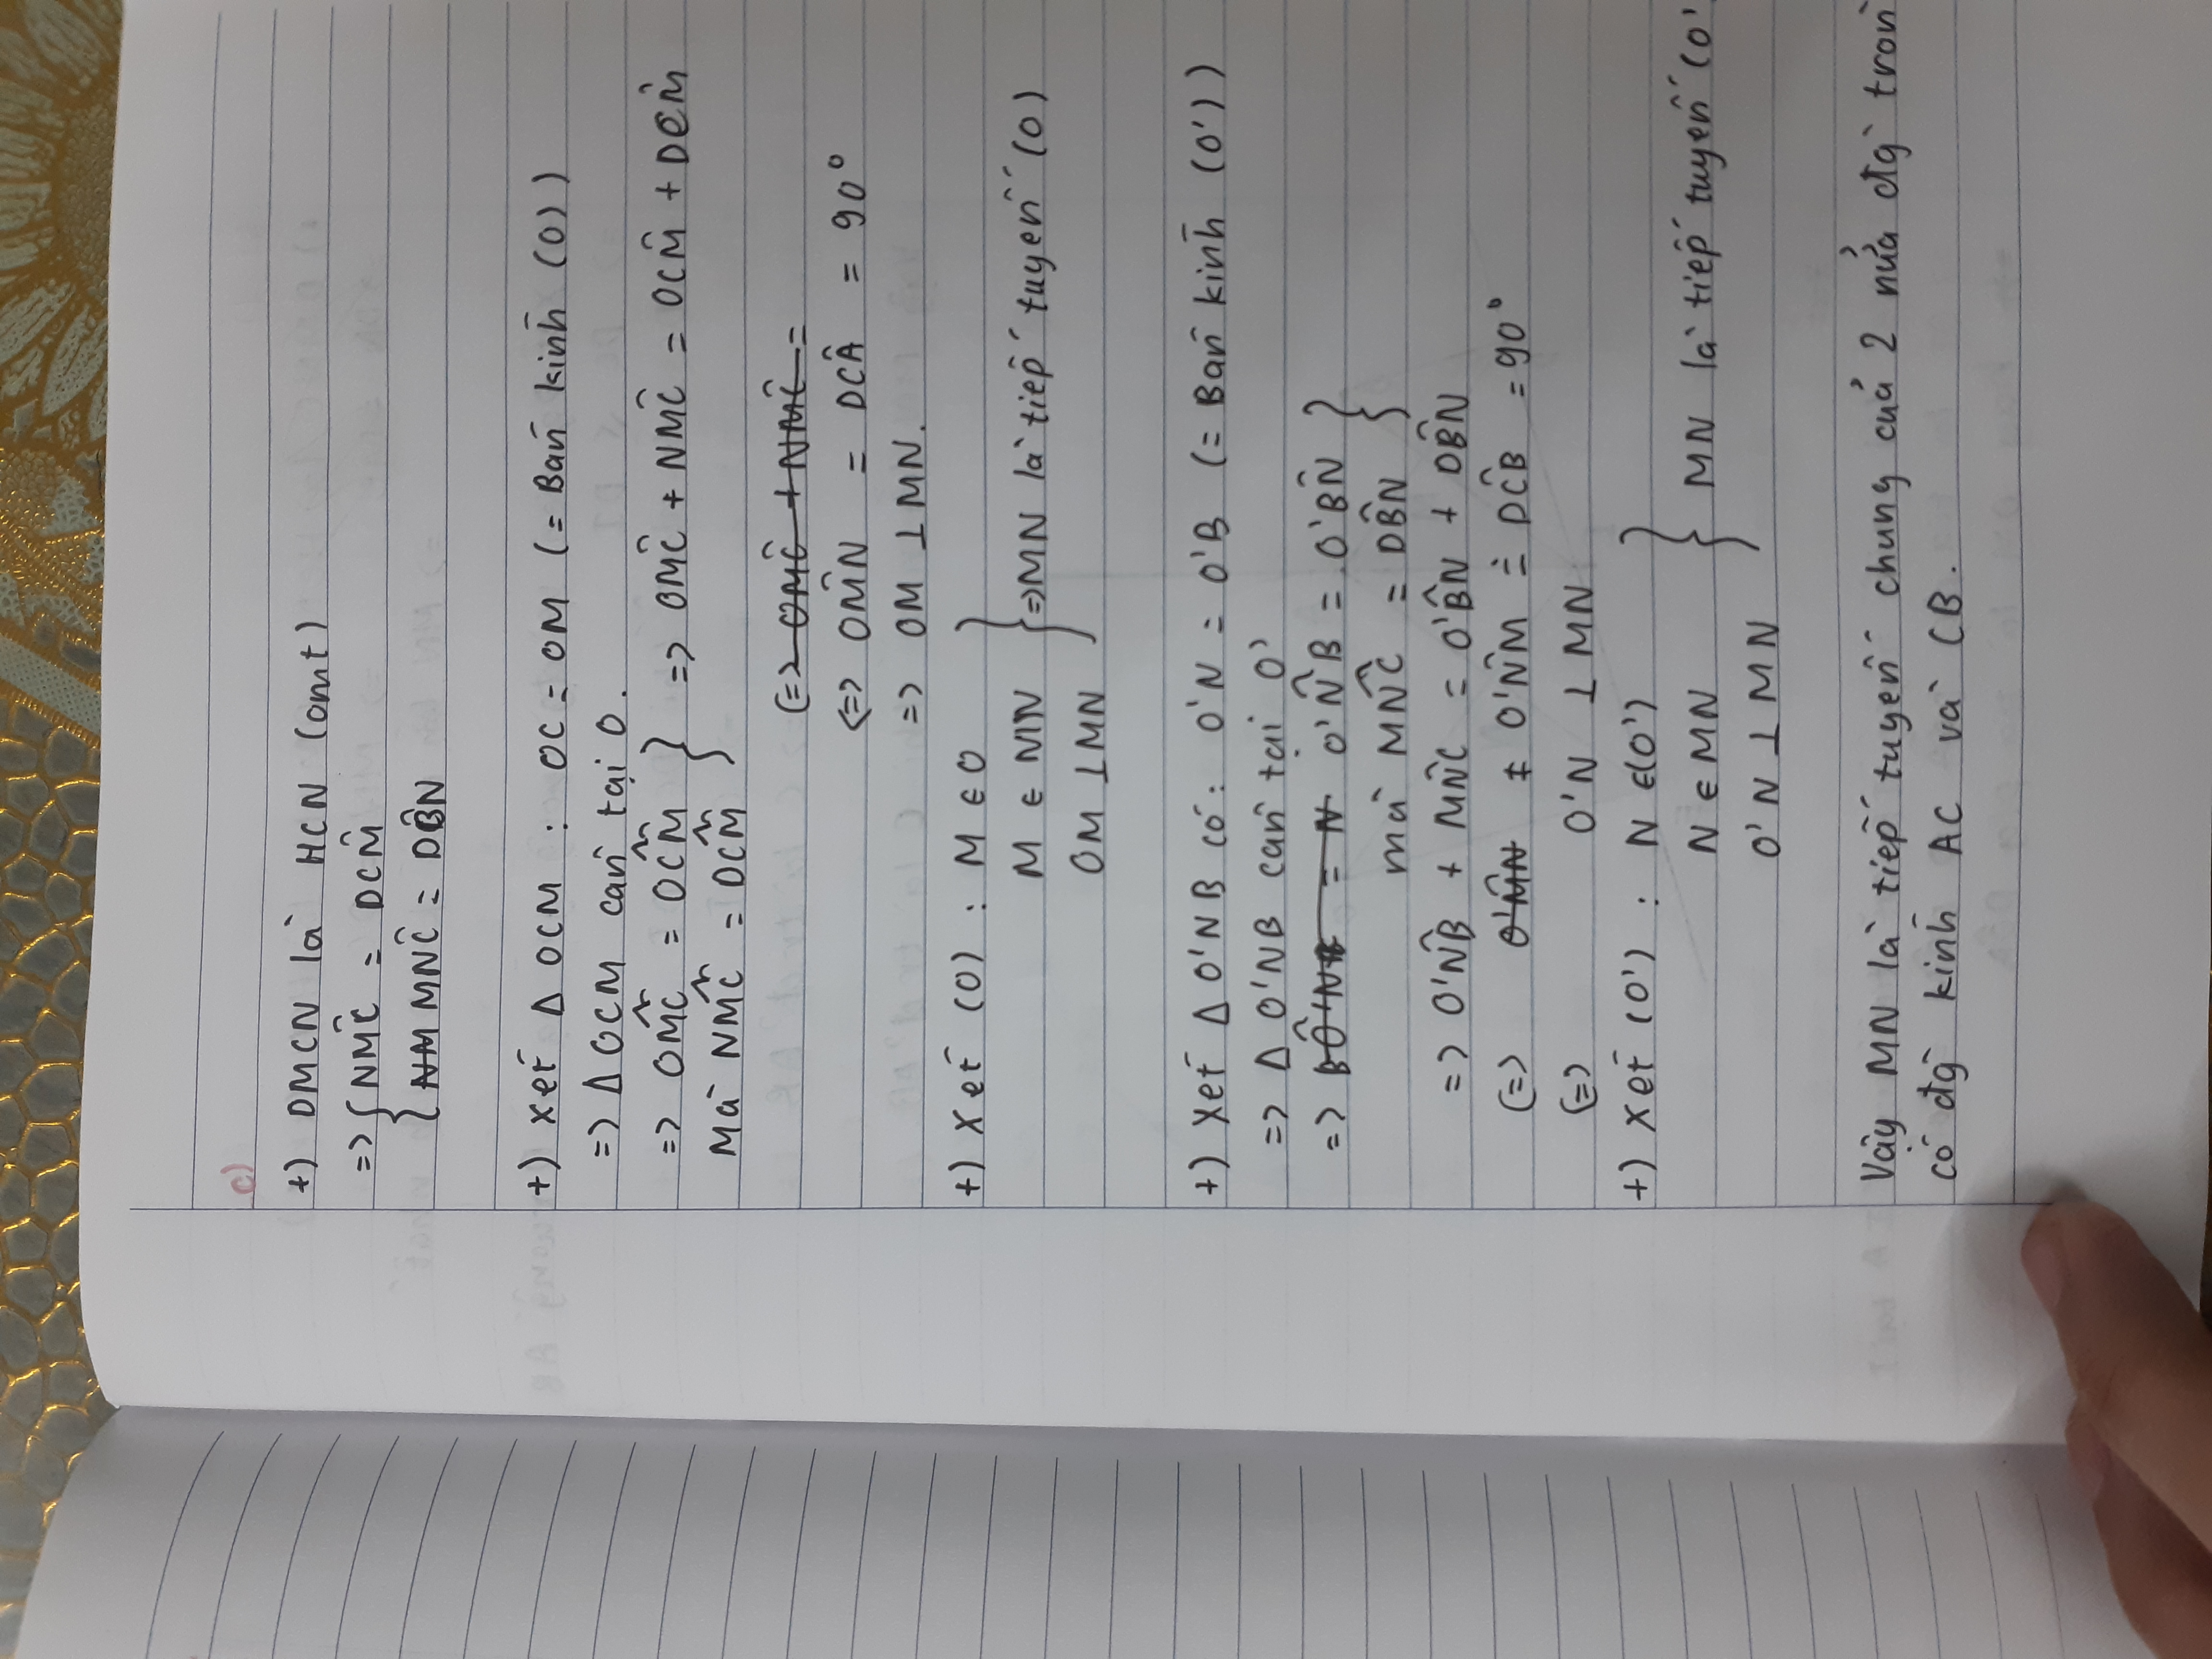 c)
+) DMCN là HCN (cmt)
=> { NMC̑ = DCM̑
{ NM MNC̑ = DB̂N
+) Xét Δ OCM : OC = OM (= Bán kính (O))
=> Δ OCM cân tại O.
=> OM̂C = OĈM } => OMĈ + NMĈ = OCM̂ + DCM̂
Mà NM̂C = DĈM
<=> OMĈ + NMĈ =
<=> OM̂N = DCÂ = 90°
=> OM ⊥ MN.
+) Xét (O) : M ∈ O
M ∈ MN } => MN là tiếp tuyến (O)
OM ⊥ MN
+) Xét Δ O'NB có: O'N = O'B (= Bán kính (O'))
=> Δ O'NB cân tại O'
=> BÔ'NB = N O'N̂B = O'BN̂ }
mà MN̂C = DB̂N
=> O'NB̂ + MN̂C = O'B̂N + DB̂N
<=> O'M̂N = O'N̂M = DĈB = 90°
<=> O'N ⊥ MN
+) Xét (O') : N ∈ (O')
N ∈ MN } MN là tiếp tuyến (O'
O'N ⊥ MN
Vậy MN là tiếp tuyến chung của 2 nửa đg tròn
có đg kính AC và CB.